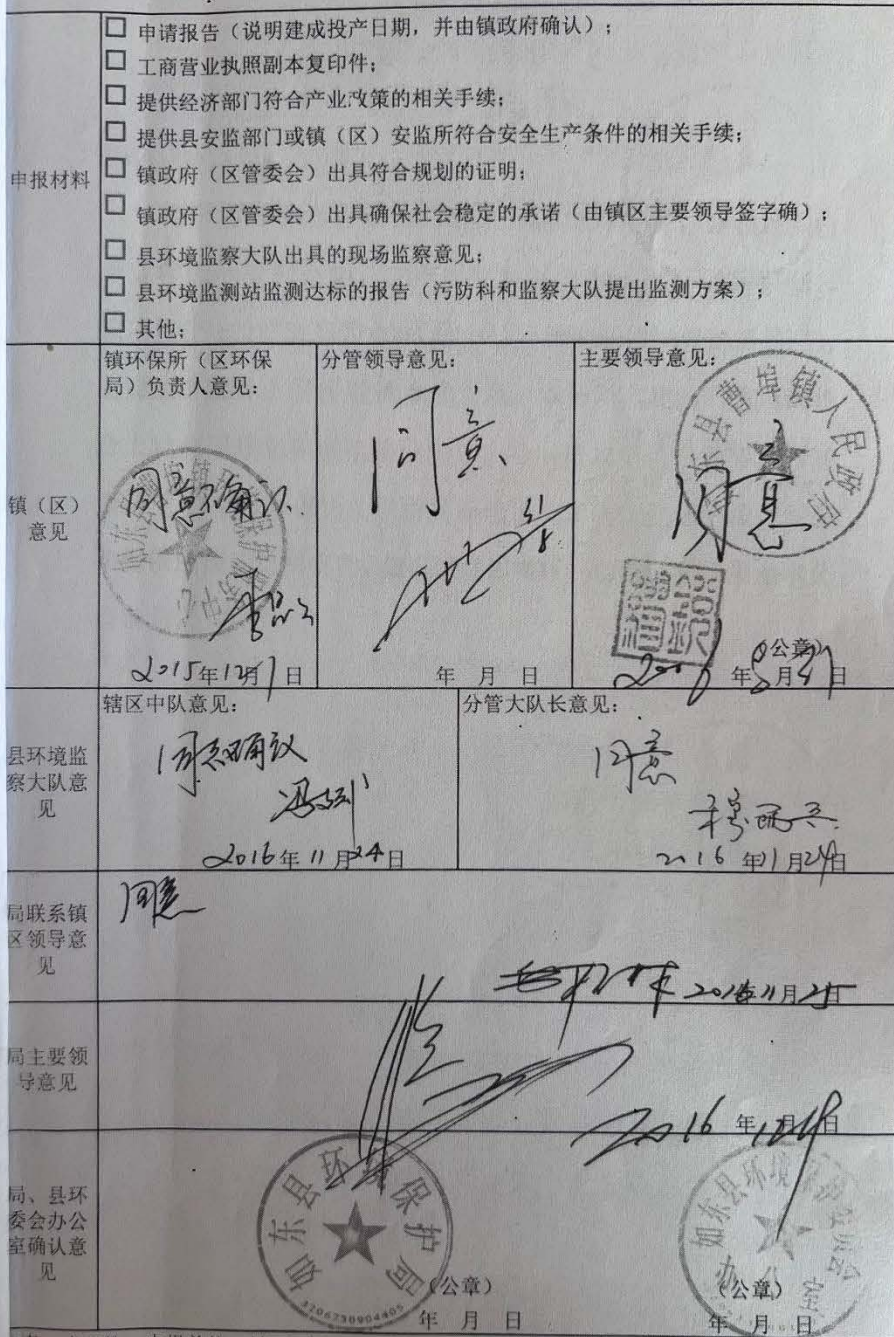 申报材料
□ 申请报告（说明建成投产日期，并由镇政府确认）；
□ 工商营业执照副本复印件；
□ 提供经济部门符合产业政策的相关手续；
□ 提供县安监部门或镇（区）安监所符合安全生产条件的相关手续；
□ 镇政府（区管委会）出具符合规划的证明；
□ 镇政府（区管委会）出具确保社会稳定的承诺（由镇区主要领导签字确）；
□ 县环境监察大队出具的现场监察意见；
□ 县环境监测站监测达标的报告（污防科和监察大队提出监测方案）；
□ 其他；
镇（区）
意见
镇环保所（区环保
局）负责人意见：
同意确认
2015年12月1日
分管领导意见：
同意
年 月 日
主要领导意见：
如东县曹埠镇人民政府
同意
（公章）
年 月 日
县环境监
察大队意
见
辖区中队意见：
同意确认
2016年11月24日
分管大队长意见：
同意
2016年11月24日
局联系镇
区领导意
见
同意
2016年11月25日
局主要领
导意见
2016年 月 日
局、县环
委会办公
室确认意
见
如东县环境保护局
3206230904405
（公章）
年 月 日
如东县环境保护委员会
办公室
（公章）
年 月 日